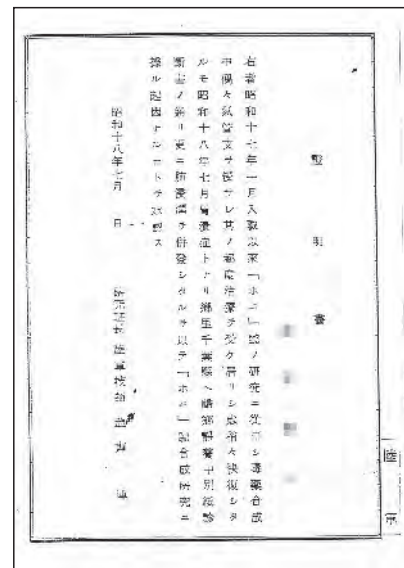 證明書
右者昭和十七年一月入職以来「ホニ」號ノ研究ニ從事シ毒藥合成
中偶々氣管支ヲ侵サレ其ノ都度治療ヲ受ケ居リシ處稍々快復シタ
ルモ昭和十八年七月胃潰症トナリ郷里千葉縣ヘ歸郷靜養中別紙診
斷書ノ通リ更ニ肺浸潤ヲ併發シタルヲ以テ「ホニ」號合成研究ニ
據ル起因ナルコトヲ認ス
昭和十八年七月 日
研究 陸軍技師
陸軍